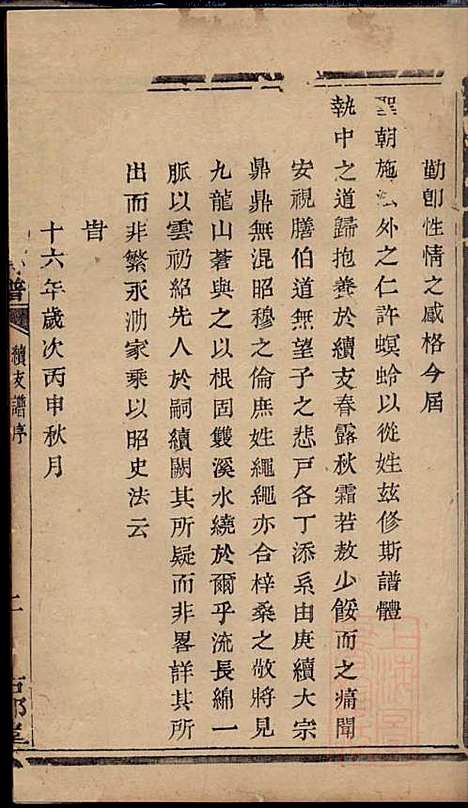 勤卽性情之感格今屆
聖朝施法外之仁許螟蛉以從姓茲修斯譜體
執中之道歸抱養於續支春露秋霜若敖少餒而之痛聞
安視膳伯道無望子之悲戸各丁添系由庚續大宗
鼎鼎無混昭穆之倫庶姓繩繩亦合梓桑之敬將見
九龍山蒼與之以根固雙溪水繞於爾乎流長綿一
脈以雲礽紹先人於嗣續闕其所疑而非畧詳其所
出而非繁永泐家乘以昭史法云
旹
十六年歲次丙申秋月
譜
續支譜序
二